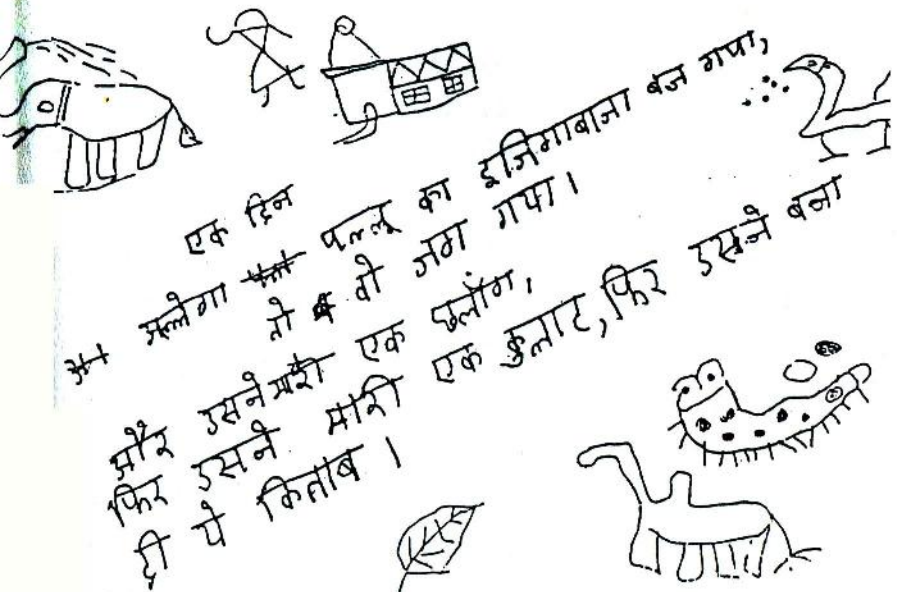 एक दिन
मल्लेगा पल्लू का इजिगाबाजा बज गया,
तो वो जग गया।
और उसने मारी एक छलाँग,
फिर उसने मारी एक कुलाट, फिर उसने बना
दी ये किताब।